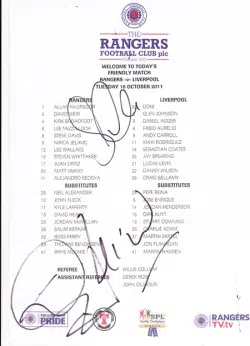 THE
RANGERS
FOOTBALL CLUB plc
WELCOME TO TODAY'S
FRIENDLY MATCH
RANGERS -v- LIVERPOOL
TUESDAY 18 OCTOBER 2011
RANGERS LIVERPOOL
ALLAN McGREGOR DONI
DAVID WEIR GLEN JOHNSON
KIRK BROADFOOT DANIEL AGGER
LEE McCULLOCH FABIO AURELIO
STEVE DAVIS ANDY CARROLL
MAXI RODRIGUEZ
LEE WALLACE SEBASTIAN COATES
STEVEN WHITTAKER JAY SPEARING
JUAN ORTIZ LUCAS LEIVA
MATT McKAY DANNY WILSON
ALEJANDRO BEDOYA CRAIG BELLAMY
SUBSTITUTES SUBSTITUTES
NEIL ALEXANDER PEPE REINA
JOHN FLECK JOSE ENRIQUE
KYLE LAFFERTY JORDAN HENDERSON
DIRK KUYT
JORDAN McMILLAN STEWART DOWNING
SALIM KERKAR CHARLIE ADAM
ROSS PERRY MARTIN SKRTEL
THOMAS BENDIKSEN JON FLANAGAN
RHYS McCABE MARTIN HANSEN
REFEREE WILLIE COLLUM
ASSISTANT REFEREES DEREK ROSE
JOHN GILMOUR
PRIDE
SPL
RANGERS
TV.tv